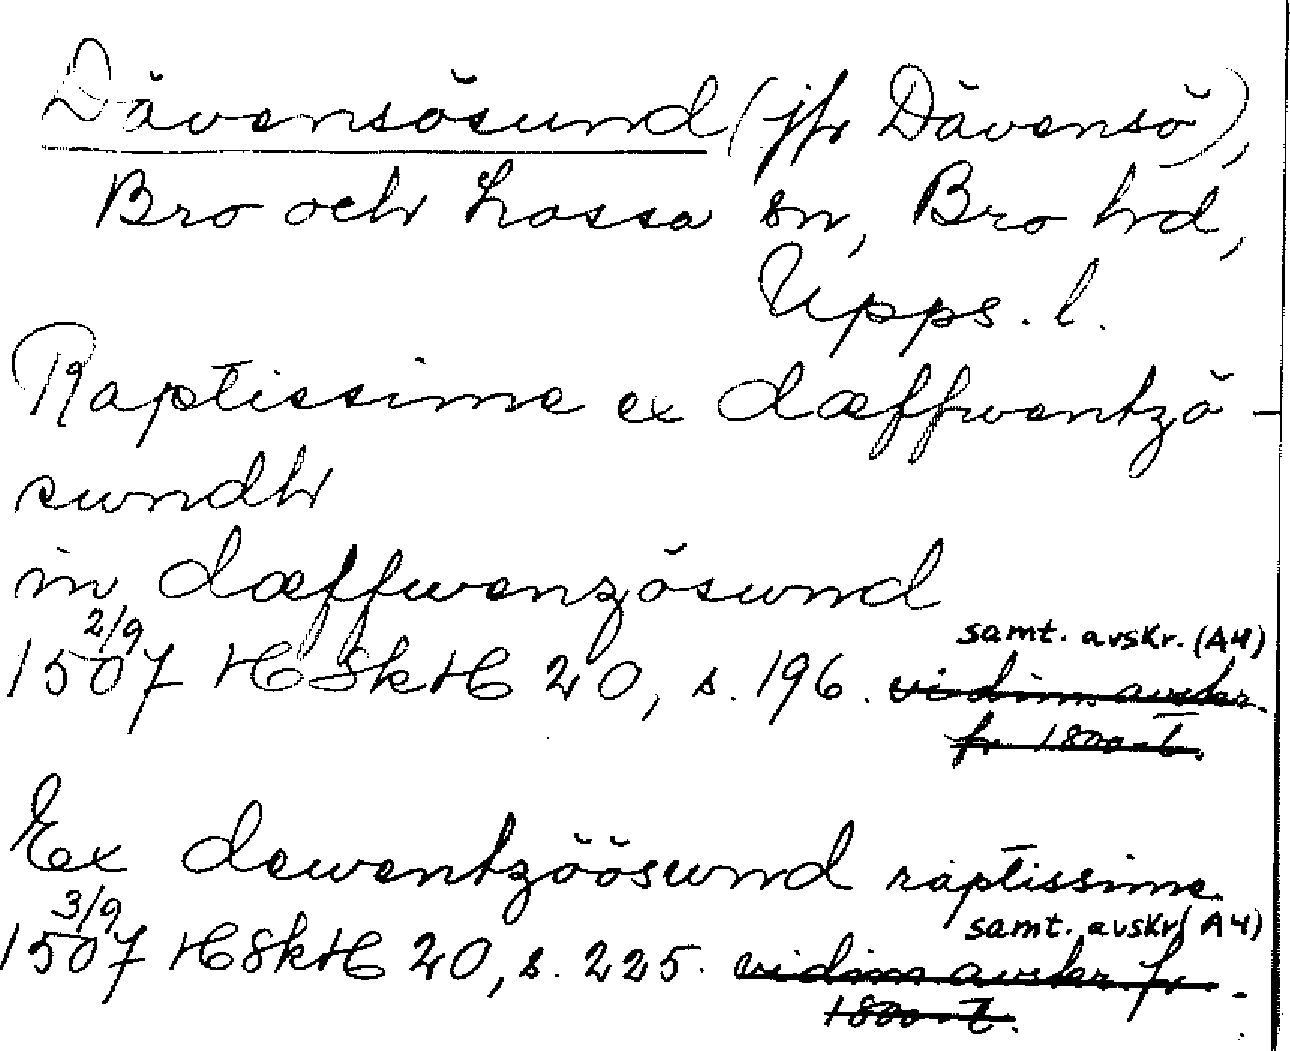 Dävensösund (jfr Dävensö),
Bro och Lossa sn, Bro hd,
Upps. l.
Raptissime ex dæffwentzö-
sundh
in dæffwenzösund
2/9 samt. avskr. (A4)
1507 HSkH 20, s. 196. vidim. avskr.
fr 1800-t.
Ex dewentzöösund raptissime
3/9 samt. avskr (A4)
1507 HSkH 20, s. 225. vidim. avskr. fr.
1800-t.